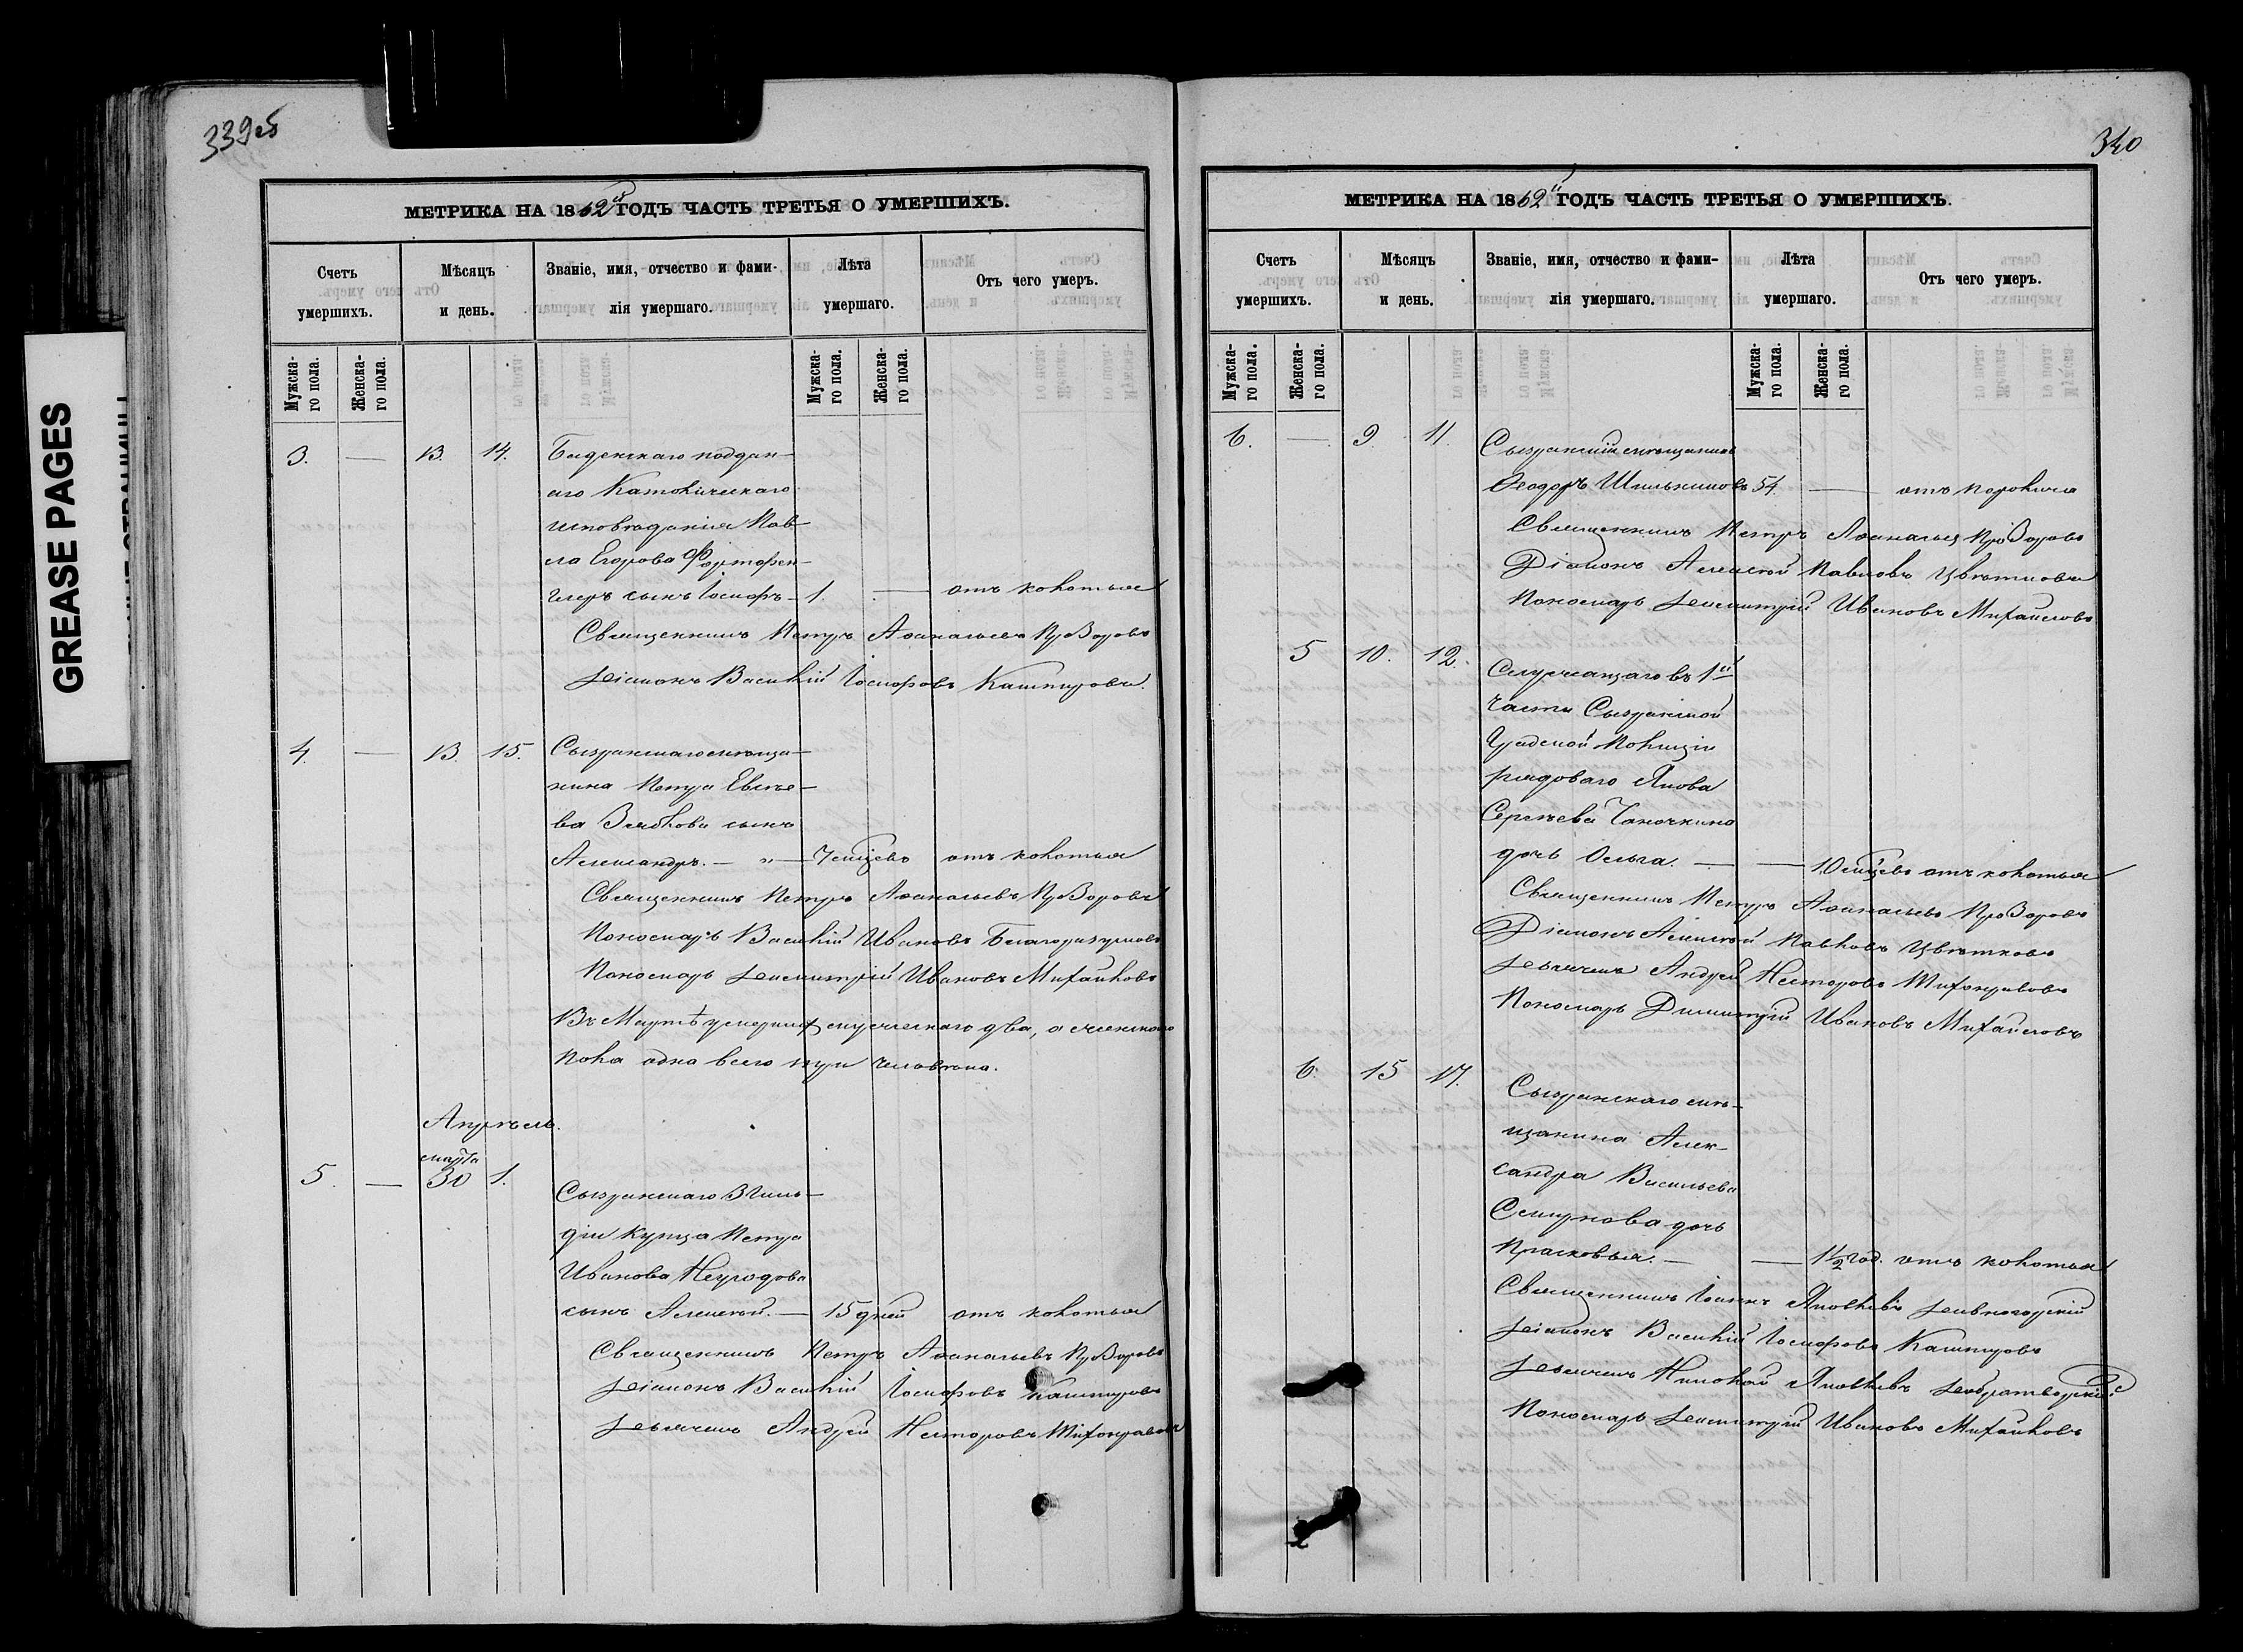 GREASE PAGES
339об
МЕТРИКА НА 1862й ГОДЪ ЧАСТЬ ТРЕТЬЯ О УМЕРШИХЪ.
Счетъ умершихъ.
Мѣсяцъ и день.
Званіе, имя, отчество и фами-
лія умершаго.
Лѣта умершаго.
Отъ чего умеръ.
Мужска-
го пола.
Женска-
го пола.
Мужска-
го пола.
Женска-
го пола.
3. — 13. 14. Баденскаго поддан-
аго Католическаго
исповѣданія Пав-
ла Егорова
сынъ Іосифъ — 1. — отъ колотья
Священникъ Петръ Аѳанасьевъ Прозоровъ
Діаконъ Василій Іосифовъ Каштуровъ.
4. — 13. 15. Сызранскаго мѣща-
нина Петра Евсѣе-
ва сынъ
Александръ. — „ — 7 мѣсяцевъ отъ колотья
Священникъ Петръ Аѳанасьевъ Прозоровъ
Пономарь Василій Ивановъ Благоразумовъ
Пономарь Димитрій Ивановъ Михайловъ
Въ Мартѣ умершихъ мужескаго два, а женскаго
пола одна всего три человѣка.
Апрѣль.
марта
5. — 30 1. Сызранскаго 3 гиль-
діи купца Петра
Иванова
сынъ Алексѣй. — 15 дней отъ колотья
Священникъ Петръ Аѳанасьевъ Прозоровъ
Діаконъ Василій Іосифовъ Каштуровъ
Дьячекъ Андрей Несторовъ Тихонравовъ
340
МЕТРИКА НА 1862й ГОДЪ ЧАСТЬ ТРЕТЬЯ О УМЕРШИХЪ.
Счетъ умершихъ.
Мѣсяцъ и день.
Званіе, имя, отчество и фами-
лія умершаго.
Лѣта умершаго.
Отъ чего умеръ.
Мужска-
го пола.
Женска-
го пола.
Мужска-
го пола.
Женска-
го пола.
6. — 9. 11. Сызранскій мѣщанинъ
Ѳеодоръ 54. — отъ паралича
Священникъ Петръ Аѳанасьевъ Прозоровъ
Діаконъ Алексѣй Павловъ Цвѣтковъ
Пономарь Димитрій Ивановъ Михайловъ
5 10. 12. Служащаго въ 1й
части Сызранской
Градской Полиціи
рядоваго Якова
Сергѣева
дочь Ольга. — — 10 мѣсяцевъ отъ колотья
Священникъ Петръ Аѳанасьевъ Прозоровъ
Діаконъ Алексѣй Павловъ Цвѣтковъ
Дьячекъ Андрей Несторовъ Тихонравовъ
Пономарь Димитрій Ивановъ Михайловъ
6. 15 17. Сызранскаго мѣ-
щанина Алек-
сандра Васильева
Смирнова дочь
Прасковья. — — 1 1/2 год. отъ колотья
Священникъ Іоаннъ Яковлевъ Дивногорскій
Діаконъ Василій Іосифовъ Каштуровъ
Дьячекъ Николай Яковлевъ Добротворскій
Пономарь Димитрій Ивановъ Михайловъ